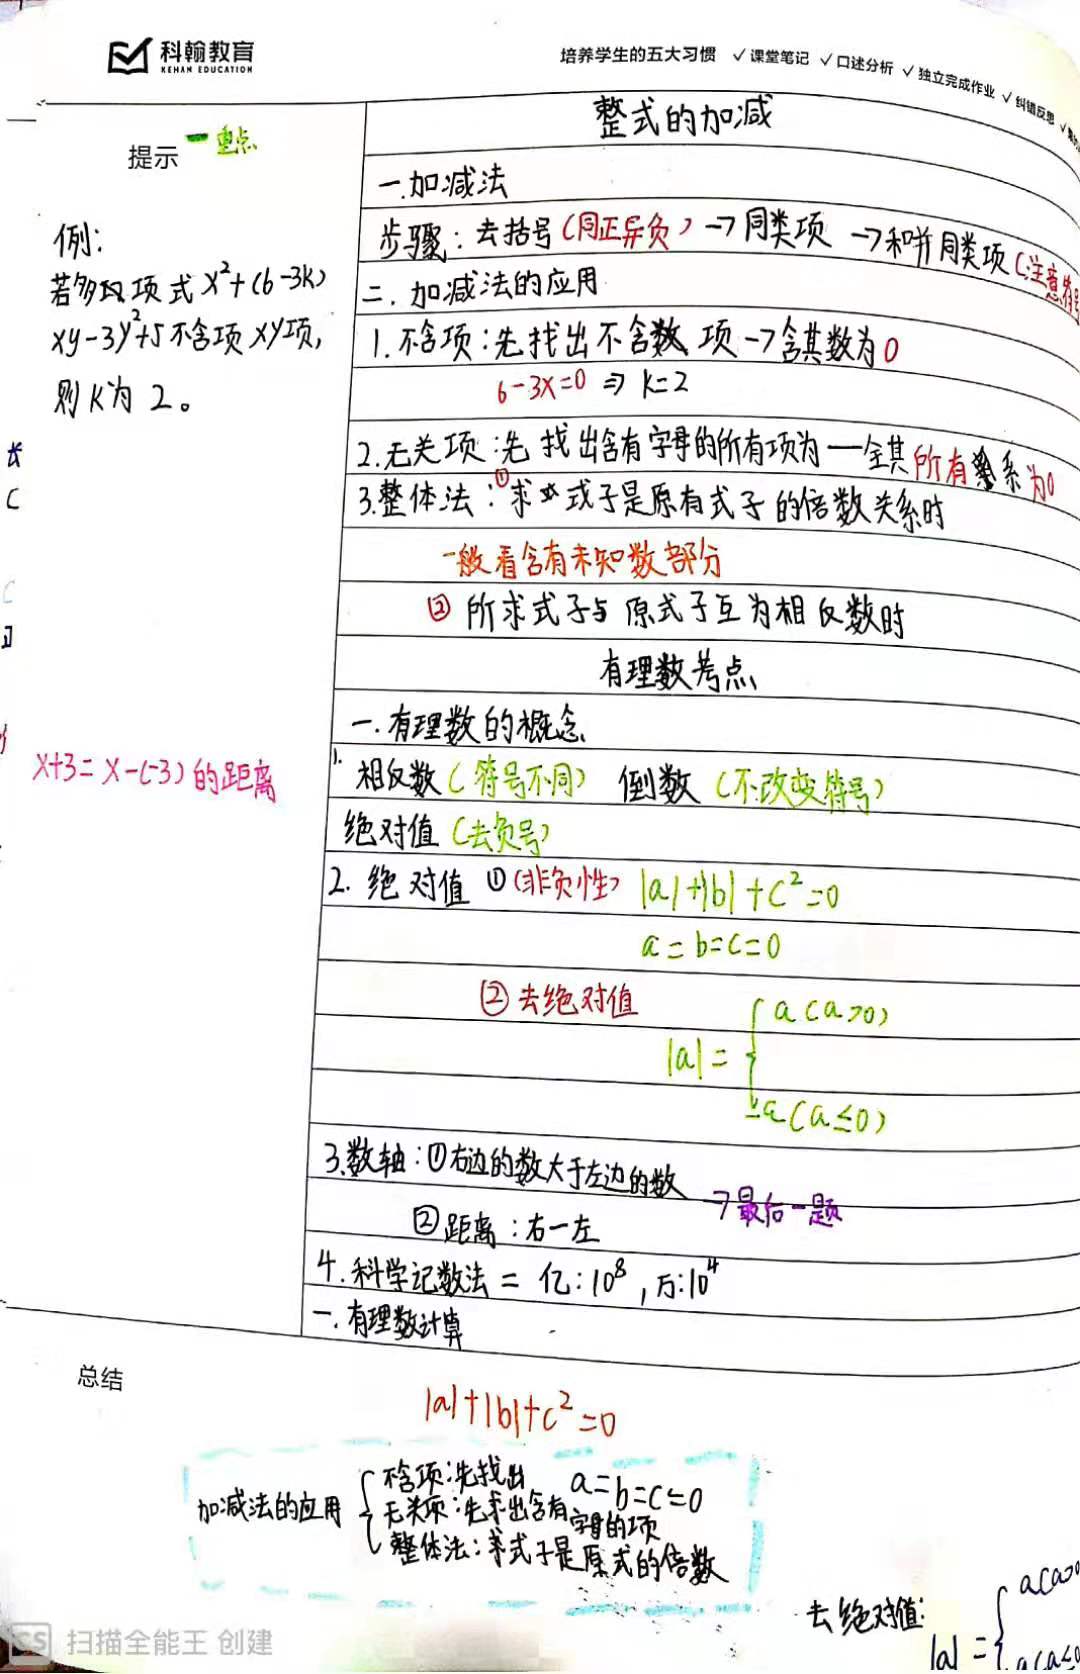 科翰教育
KEHAN EDUCATION
培养学生的五大习惯 ✓课堂笔记 ✓口述分析 ✓独立完成作业 ✓纠错反思 ✓
整式的加减
提示 一重点
一.加减法
步骤：去括号（同正异负）→同类项 →和并同类项（注意符号
二. 加减法的应用
1.不含项：先找出不含数项→含其数为0
6-3x=0 ⇒ k=2
2.无关项：先找出含有字母的所有项为一全其所有系为0
3.整体法：①求式子是原有式子的倍数关系时
一般看含有未知数部分
② 所求式子与原式子互为相反数时
例：
若多项式x²+(6-3k)
xy-3y²+5不含项xy项,
则k为 2。
长
C
有理数考点
一.有理数的概念
1.相反数（符号不同） 倒数（不改变符号）
绝对值（去负号）
x+3=x-(-3)的距离
2. 绝对值 ①（非负性） |a|+|b|+c²=0
a=b=c=0
②去绝对值 a(a>0)
|a|={
-a(a≤0)
3.数轴：①右边的数大于左边的数
→最后一题
②距离：右一左
4.科学记数法= 亿:10⁸,万:10⁴
一.有理数计算
总结
|a|+|b|+c²=0
不含项:先找出 a=b=c=0
加减法的应用{无关项:先求出含有字母的项
整体法:求式子是原式的倍数
去绝对值: a(a>0
|a|={
a(a≤0
CS 扫描全能王 创建